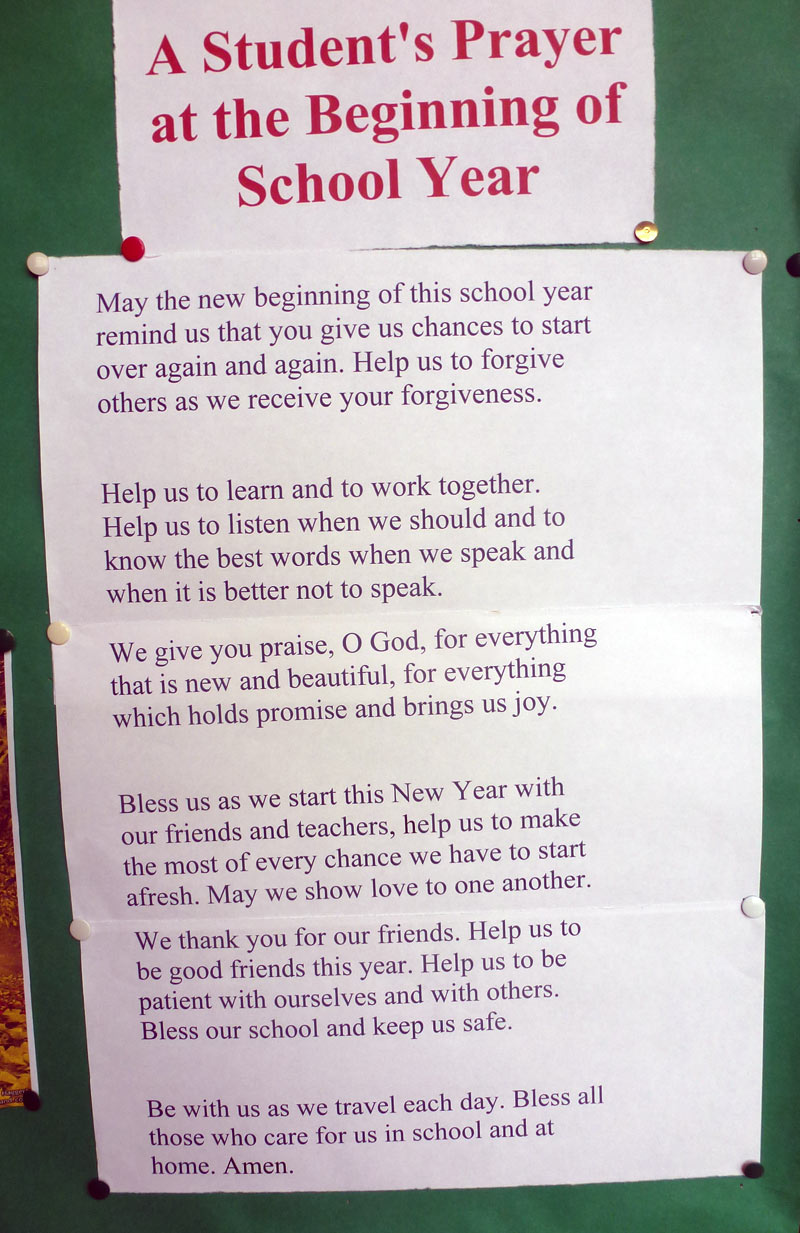 A Student's Prayer
at the Beginning of
School Year
May the new beginning of this school year
remind us that you give us chances to start
over again and again. Help us to forgive
others as we receive your forgiveness.
Help us to learn and to work together.
Help us to listen when we should and to
know the best words when we speak and
when it is better not to speak.
We give you praise, O God, for everything
that is new and beautiful, for everything
which holds promise and brings us joy.
Bless us as we start this New Year with
our friends and teachers, help us to make
the most of every chance we have to start
afresh. May we show love to one another.
We thank you for our friends. Help us to
be good friends this year. Help us to be
patient with ourselves and with others.
Bless our school and keep us safe.
Be with us as we travel each day. Bless all
those who care for us in school and at
home. Amen.